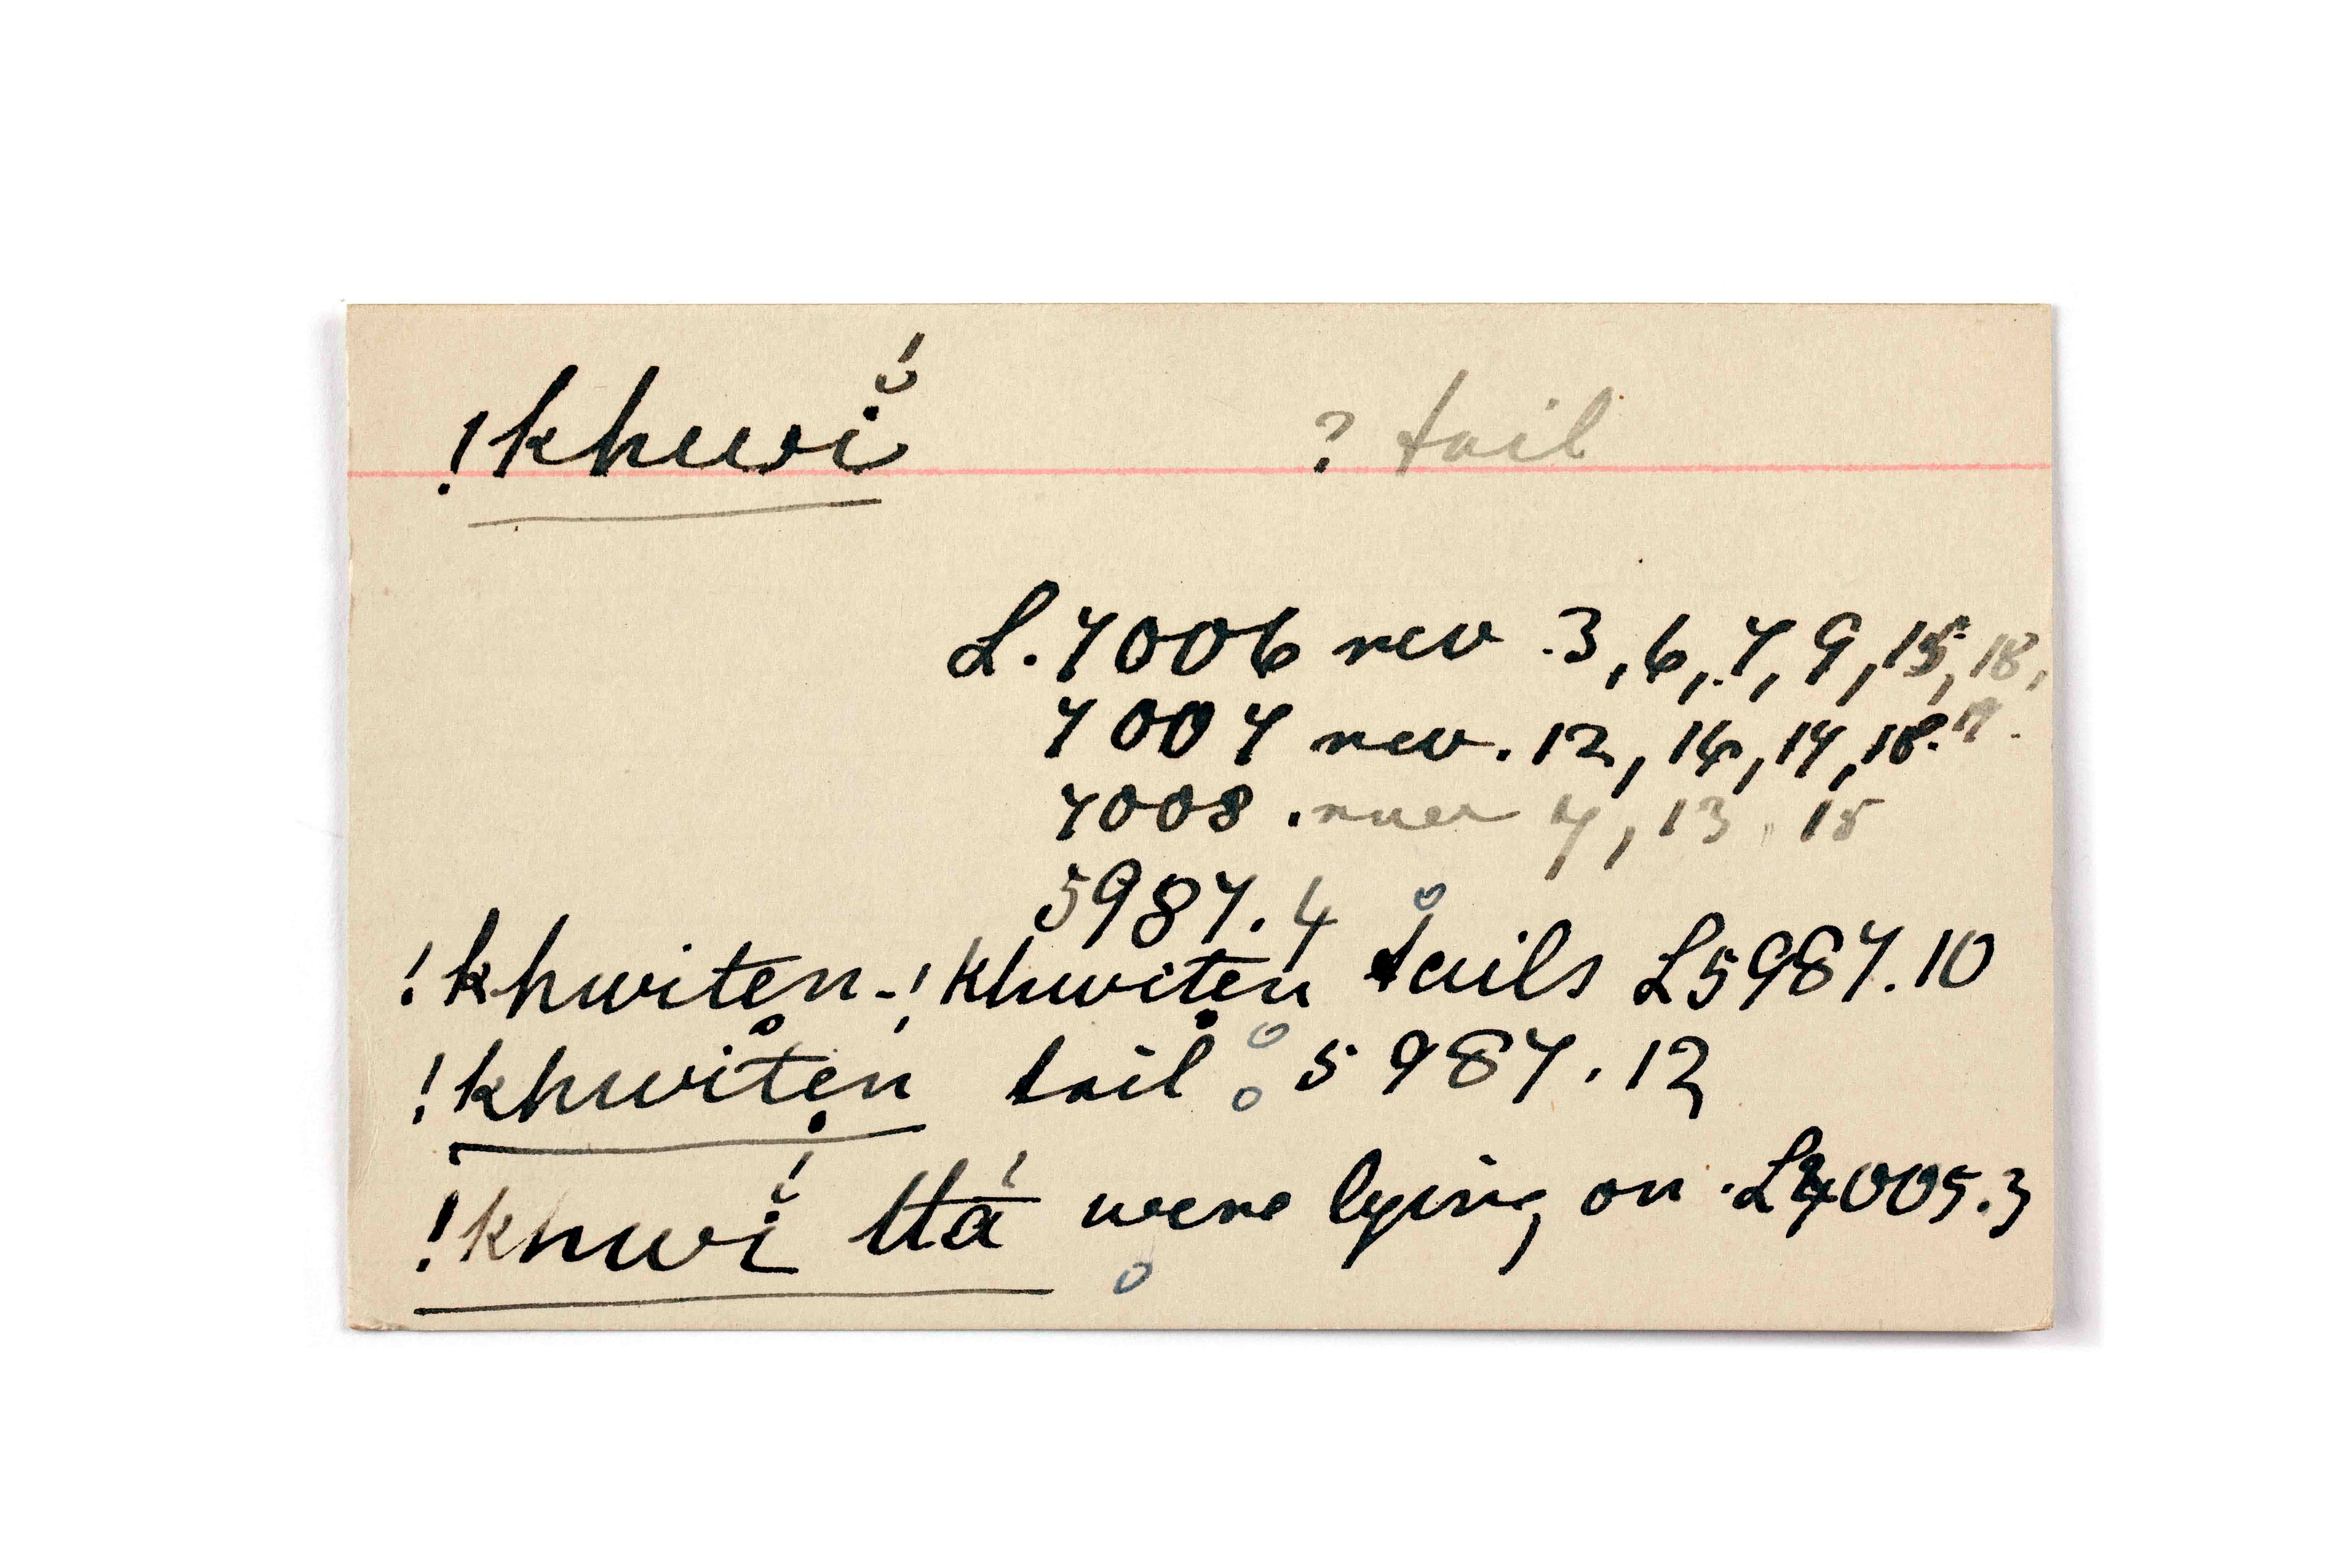 !khwĭ́ ? tail
L. 7006 rev. 3, 6, 7, 9, 15, 18,
7007 rev. 12, 16, 17, 18.
7008. rev 7, 13, 15
5987. 4
!khwiten̥-!khwitẹn tails L5987.10
!khwitẹn tail 5987.12
!khwĭ́ ttá were lying on L7005.3